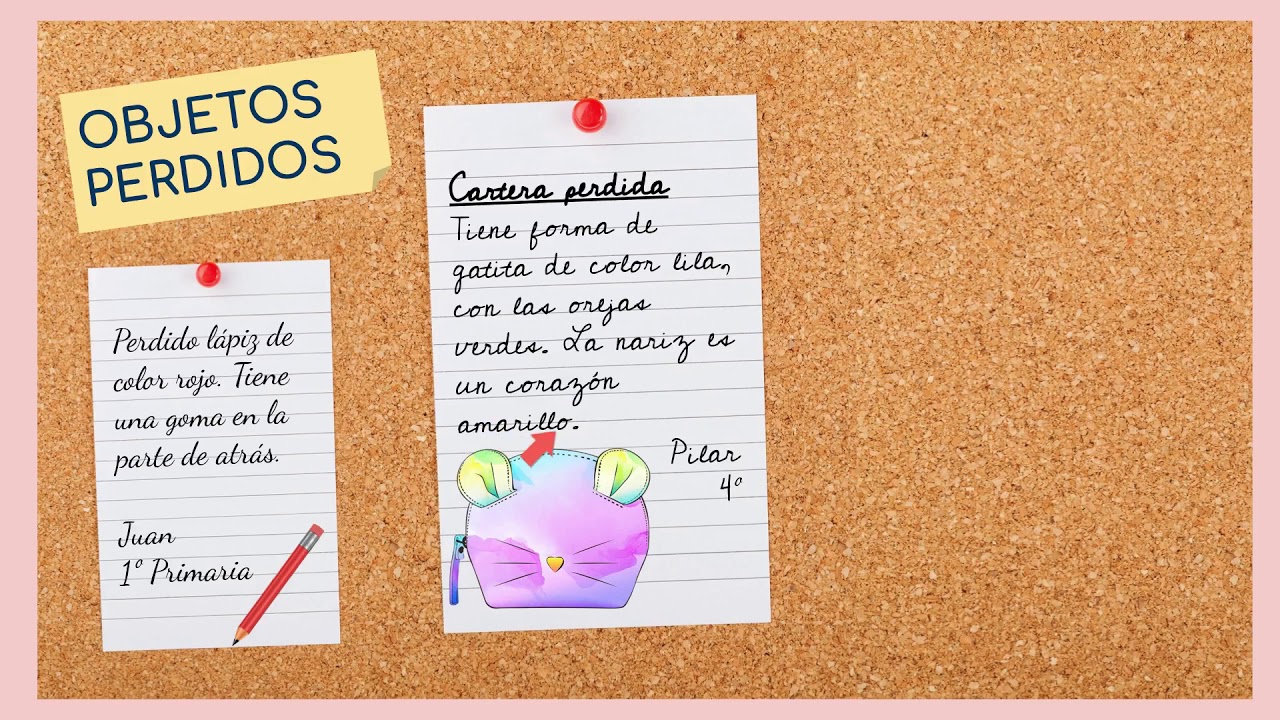 OBJETOS
PERDIDOS
Perdido lápiz de
color rojo. Tiene
una goma en la
parte de atrás.
Juan
1º Primaria
Cartera perdida
Tiene forma de
gatita de color lila,
con las orejas
verdes. La nariz es
un corazón
amarillo.
Pilar
4º